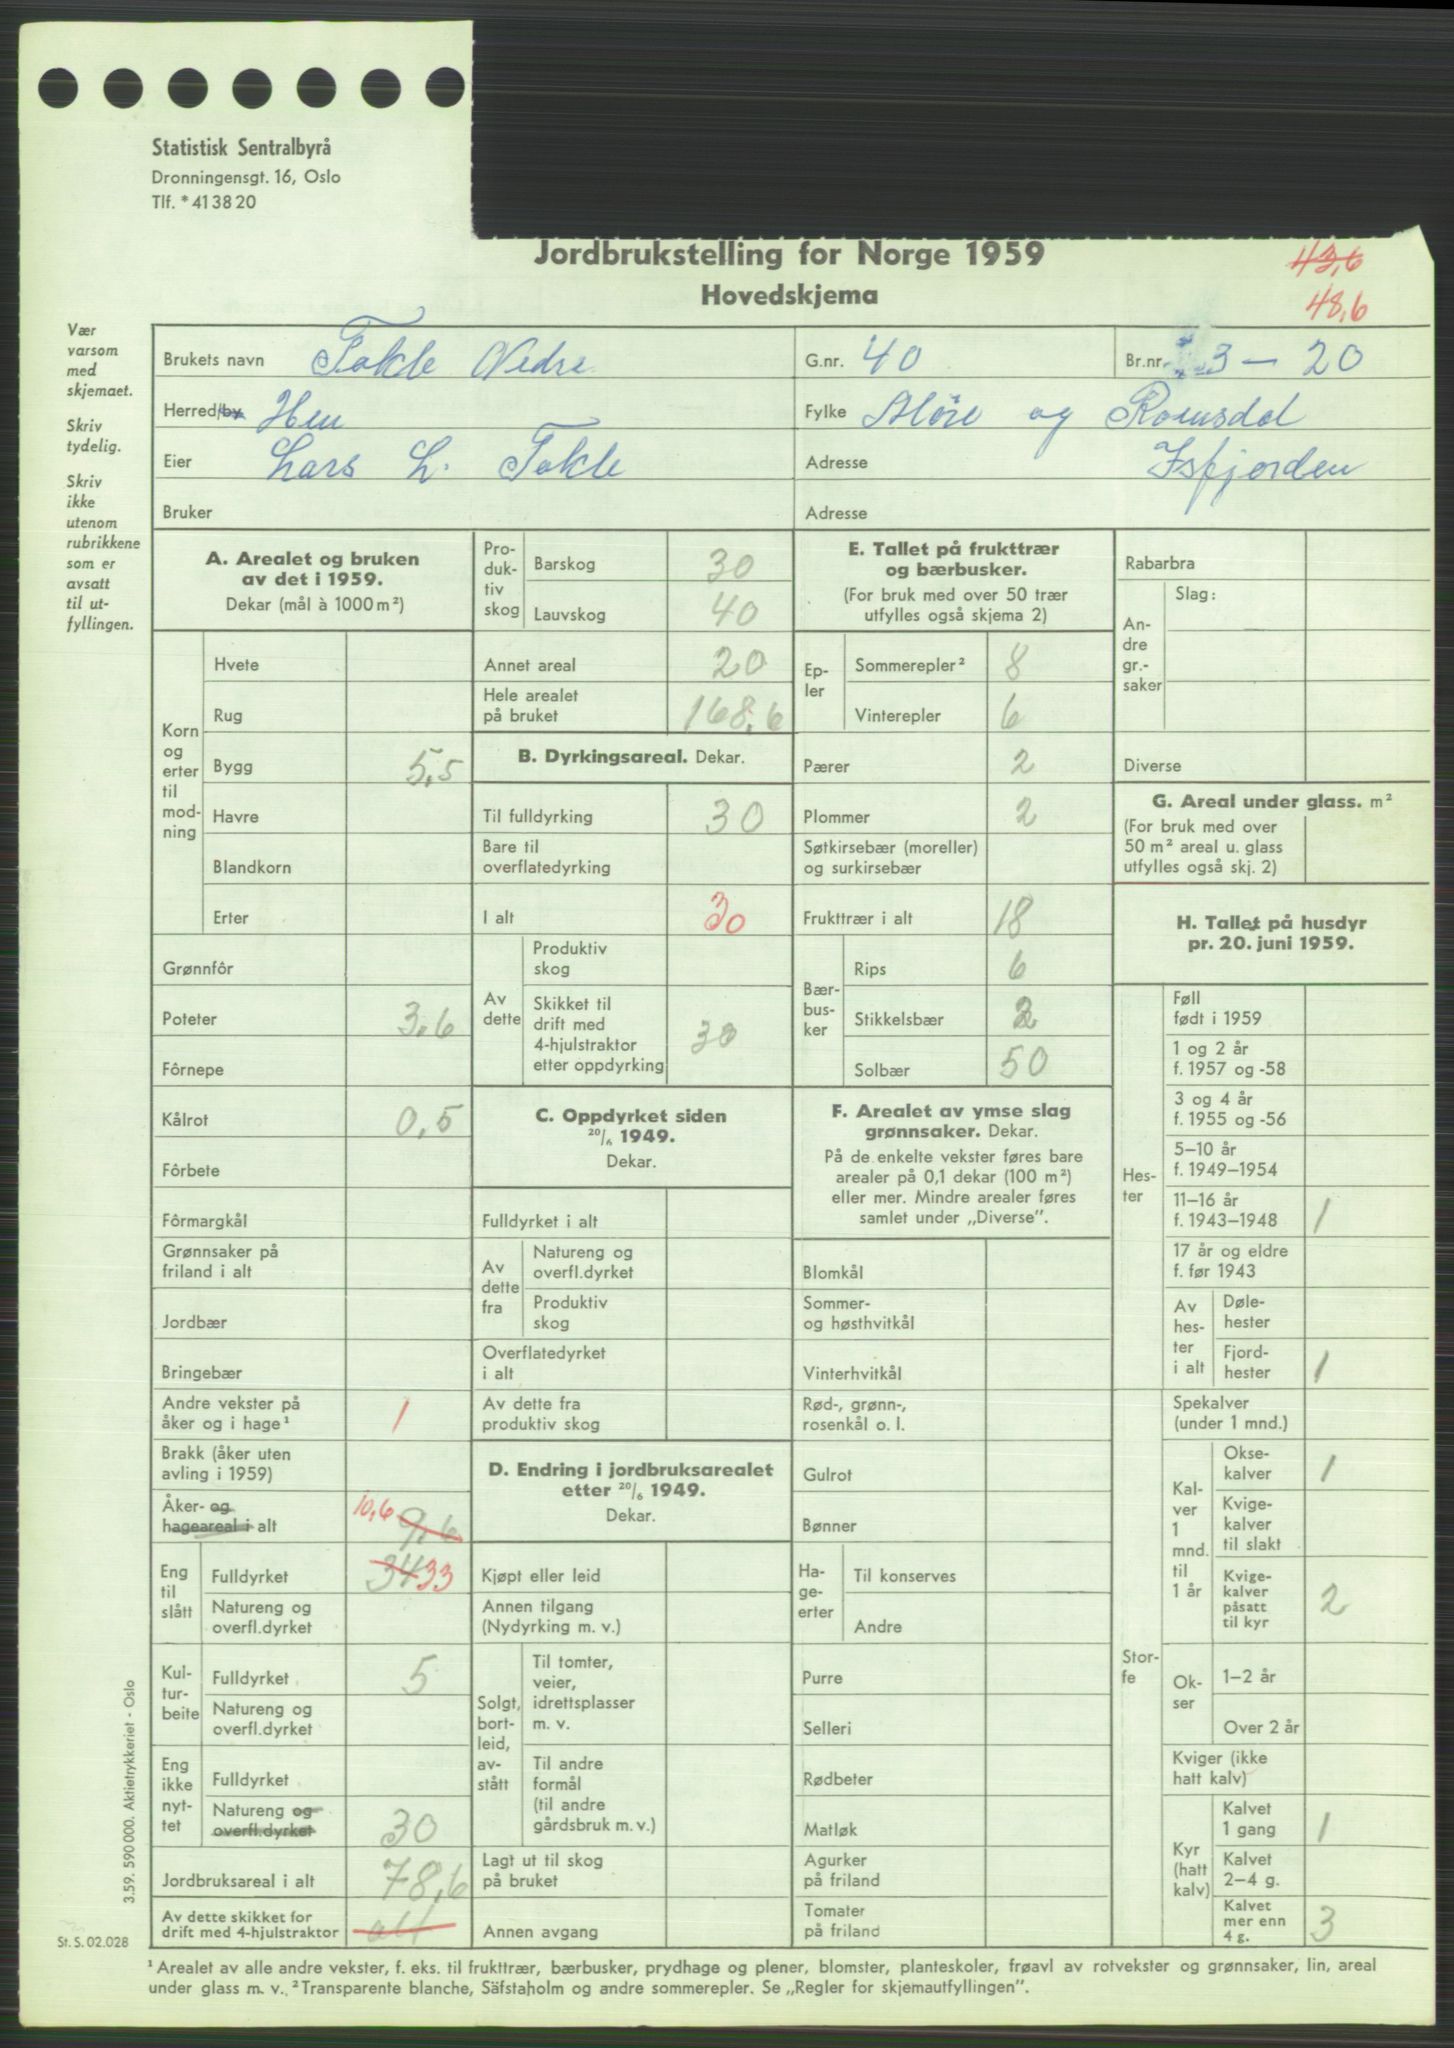 Statistisk Sentralbyrå
Dronningensgt. 16, Oslo
Tlf. * 41 38 20
Jordbrukstelling for Norge 1959
Hovedskjema
43,6
48,6
Vær
varsom
med
skjemaet.
Skriv
tydelig.
Skriv
ikke
utenom
rubrikkene
som er
avsatt
til ut-
fyllingen.
Brukets navn Tokle Nedre G.nr. 40 Br.nr. 3 — 20
Herred/by Hen Fylke Møre og Romsdal
Eier Lars L. Tokle Adresse Isfjorden
Bruker Adresse
A. Arealet og bruken
av det i 1959.
Dekar (mål à 1000 m²)
Korn
og
erter
til
mod-
ning
Hvete
Rug
Bygg 5,5
Havre
Blandkorn
Erter
Grønnfôr
Poteter 3,6
Fôrnepe
Kålrot 0,5
Fôrbete
Fôrmargkål
Grønnsaker på
friland i alt
Jordbær
Bringebær
Andre vekster på
åker og i hage¹ 1
Brakk (åker uten
avling i 1959)
Åker- og
hageareal i alt 10,6 9,6
Eng
til
slått
Fulldyrket 34 33
Natureng og
overfl.dyrket
Kul-
tur-
beite
Fulldyrket 5
Natureng og
overfl.dyrket
Eng
ikke
nyt-
tet
Fulldyrket
Natureng og
overfl.dyrket 30
Jordbruksareal i alt 78,6
Av dette skikket for
drift med 4-hjulstraktor alt
Pro-
duk-
tiv
skog
Barskog 30
Lauvskog 40
Annet areal 20
Hele arealet
på bruket 168,6
B. Dyrkingsareal. Dekar.
Til fulldyrking 30
Bare til
overflatedyrking
I alt 30
Av
dette
Produktiv
skog
Skikket til
drift med
4-hjulstraktor
etter oppdyrking 30
C. Oppdyrket siden
20/6 1949.
Dekar.
Fulldyrket i alt
Av
dette
fra
Natureng og
overfl.dyrket
Produktiv
skog
Overflatedyrket
i alt
Av dette fra
produktiv skog
D. Endring i jordbruksarealet
etter 20/6 1949.
Dekar.
Kjøpt eller leid
Annen tilgang
(Nydyrking m. v.)
Solgt,
bort-
leid,
av-
stått
Til tomter,
veier,
idrettsplasser
m. v.
Til andre
formål
(til andre
gårdsbruk m. v.)
Lagt ut til skog
på bruket
Annen avgang
E. Tallet på frukttrær
og bærbusker.
(For bruk med over 50 trær
utfylles også skjema 2)
Ep-
ler
Sommerepler² 8
Vinterepler 6
Pærer 2
Plommer 2
Søtkirsebær (moreller)
og surkirsebær
Frukttrær i alt 18
Bær-
bus-
ker
Rips 6
Stikkelsbær 2
Solbær 50
F. Arealet av ymse slag
grønnsaker. Dekar.
På de enkelte vekster føres bare
arealer på 0,1 dekar (100 m²)
eller mer. Mindre arealer føres
samlet under „Diverse”.
Blomkål
Sommer-
og høsthvitkål
Vinterhvitkål
Rød-, grønn-,
rosenkål o. l.
Gulrot
Bønner
Ha-
ge-
erter
Til konserves
Andre
Purre
Selleri
Rødbeter
Matløk
Agurker
på friland
Tomater
på friland
Rabarbra
An-
dre
gr.-
saker
Slag:
Diverse
G. Areal under glass. m²
(For bruk med over
50 m² areal u. glass
utfylles også skj. 2)
H. Tallet på husdyr
pr. 20. juni 1959.
Hes-
ter
Føll
født i 1959
1 og 2 år
f. 1957 og -58
3 og 4 år
f. 1955 og -56
5–10 år
f. 1949–1954
11–16 år
f. 1943–1948 1
17 år og eldre
f. før 1943
Av
hes-
ter
i alt
Døle-
hester
Fjord-
hester 1
Stor-
fe
Spekalver
(under 1 mnd.)
Kal-
ver
1
mnd.
til
1 år
Okse-
kalver 1
Kvige-
kalver
til slakt
Kvige-
kalver
påsatt
til kyr 2
Ok-
ser
1–2 år
Over 2 år
Kviger (ikke
hatt kalv)
Kyr
(hatt
kalv)
Kalvet
1 gang 1
Kalvet
2–4 g.
Kalvet
mer enn
4 g. 3
3.59. 590 000. Aktietrykkeriet - Oslo
St. S. 02.028
¹ Arealet av alle andre vekster, f. eks. til frukttrær, bærbusker, prydhage og plener, blomster, planteskoler, frøavl av rotvekster og grønnsaker, lin, areal
under glass m. v. ² Transparente blanche, Säfstaholm og andre sommerepler. Se „Regler for skjemautfyllingen”.